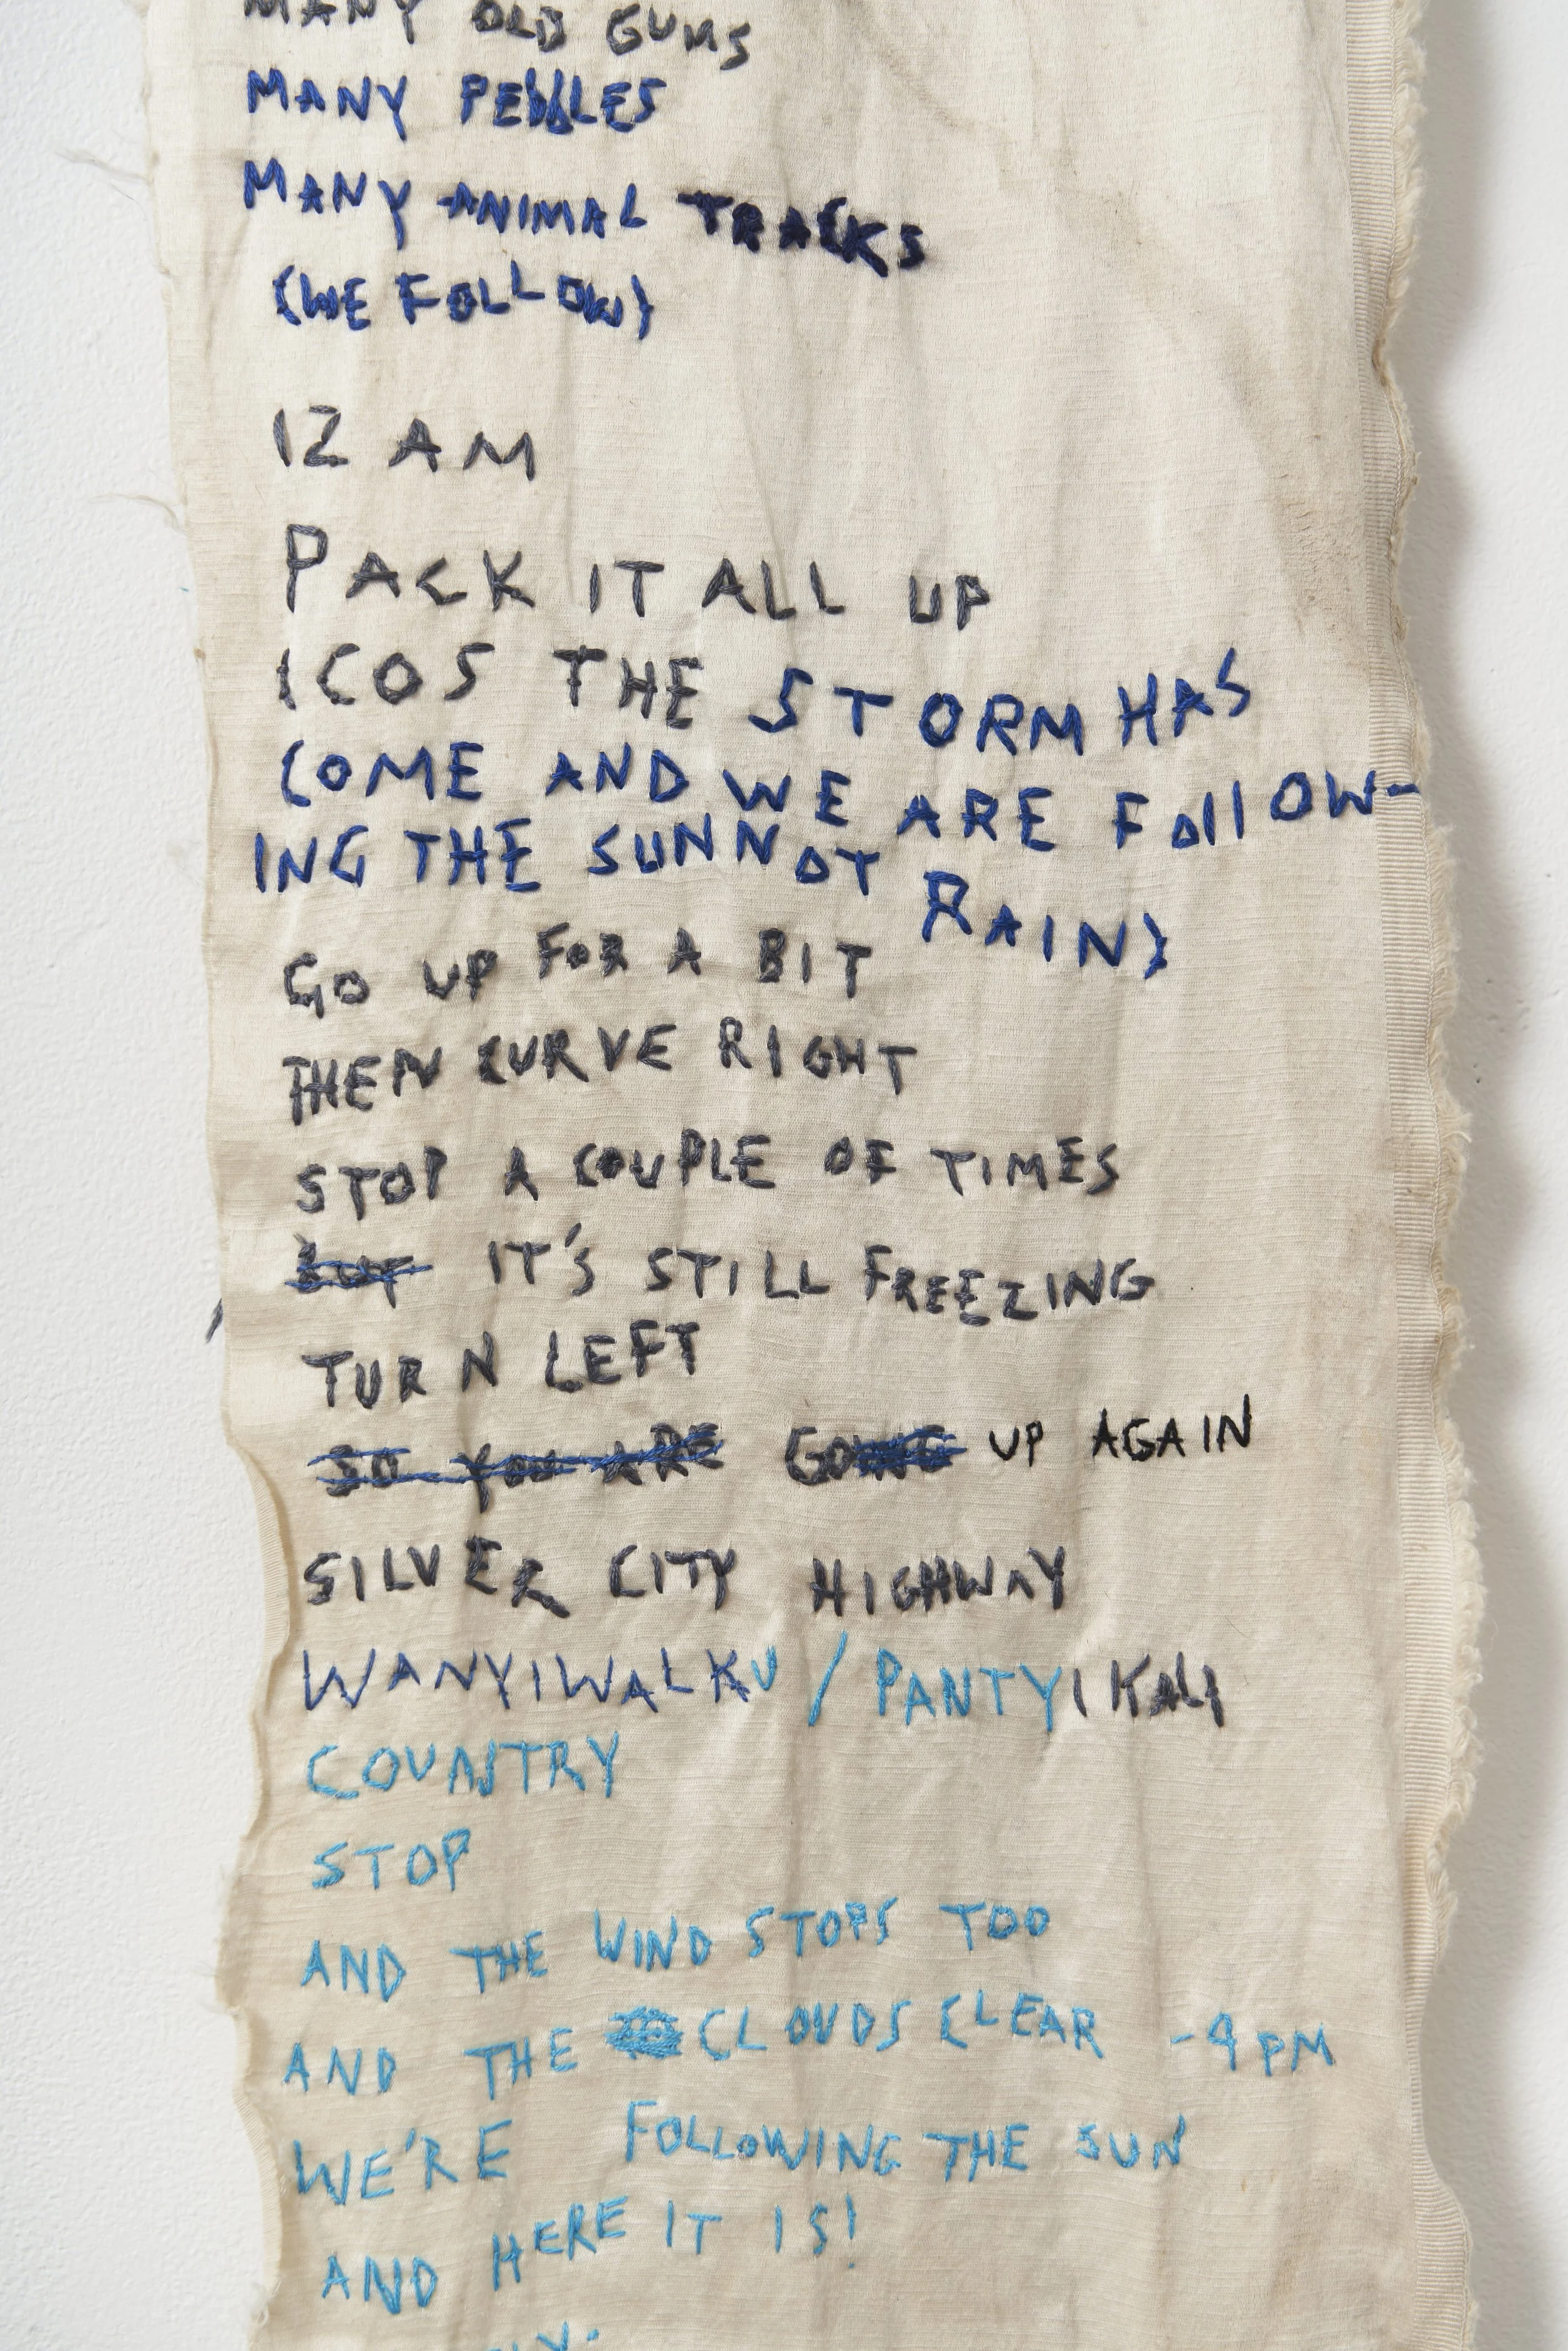 MANY OLD GUMS
MANY PEBBLES
MANY ANIMAL TRACKS
(WE FOLLOW)
12 AM
PACK IT ALL UP
(COS THE STORM HAS
COME AND WE ARE FOllOW-
ING THE SUN NOT RAIN)
GO UP FOR A BIT
THEN CURVE RIGHT
STOP A COUPLE OF TIMES
BUT IT'S STILL FREEZING
TURN LEFT
SO YOU ARE GOING UP AGAIN
SILVER CITY HIGHWAY
WANYIWALKU / PANTYIKALI
COUNTRY
STOP
AND THE WIND STOPS TOO
AND THE CLOUDS CLEAR -4PM
WE'RE FOLLOWING THE SUN
AND HERE IT IS!